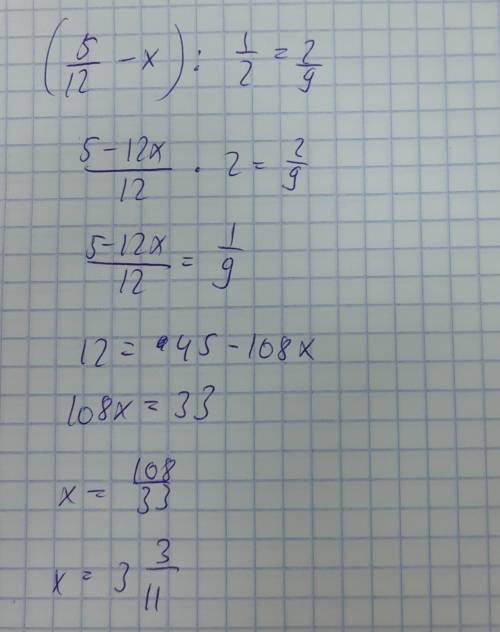 (5/12 - x) : 1/2 = 2/9
5-12x/12 · 2 = 2/9
5-12x/12 = 1/9
12 = 45 - 108x
108x = 33
x = 108/33
x = 3 3/11